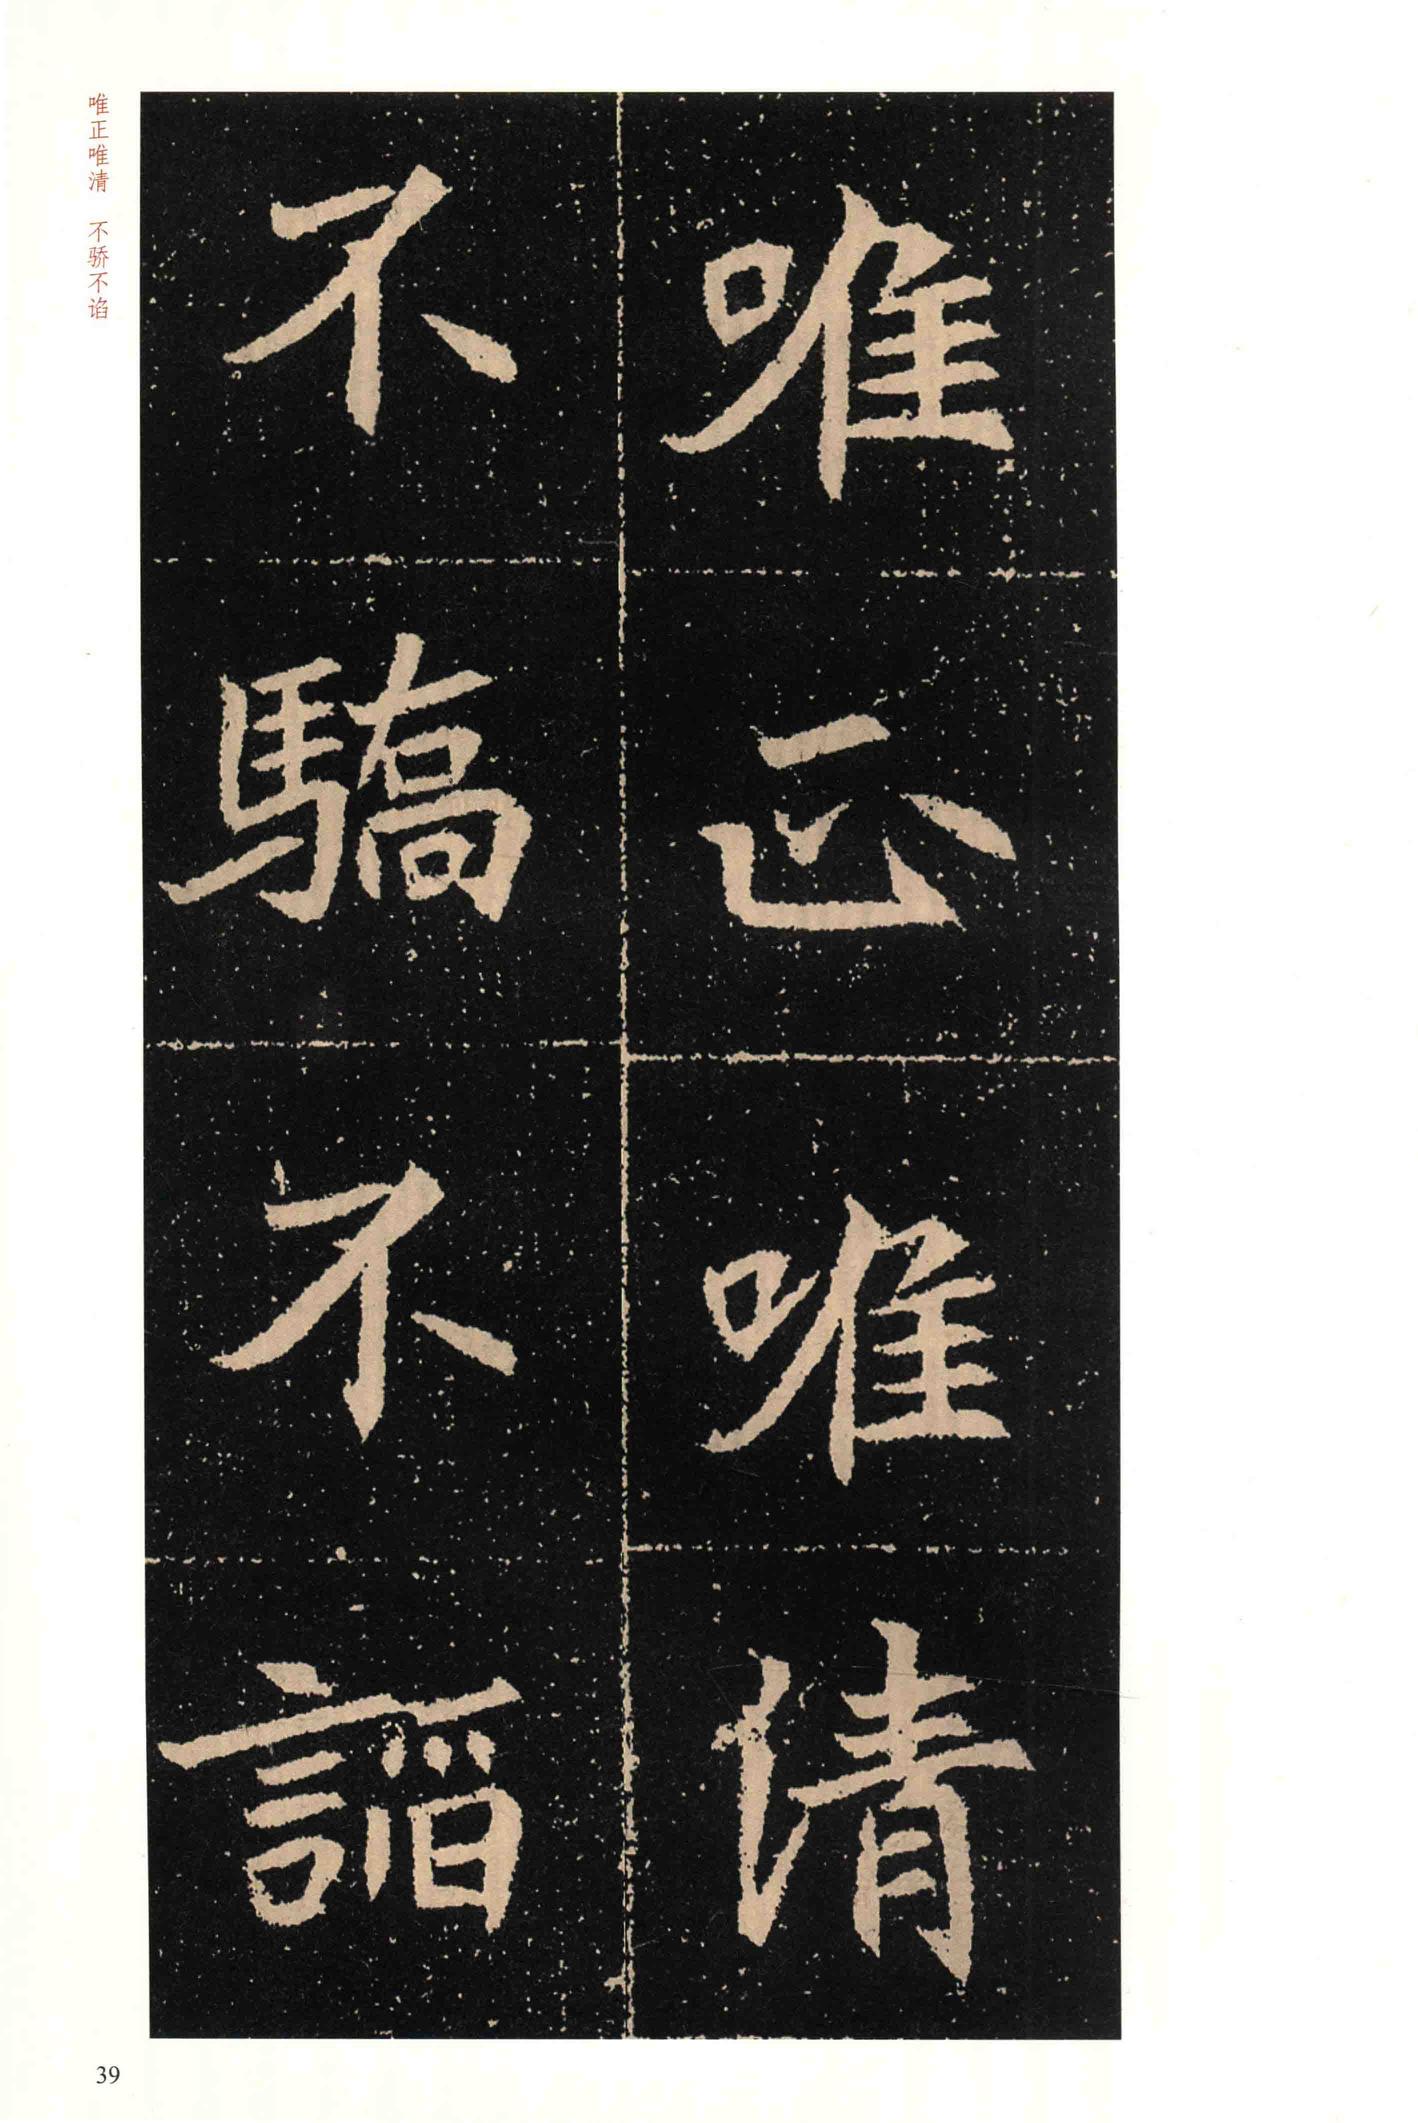 唯正唯清
不驕不諂
唯正唯清 不骄不谄
39